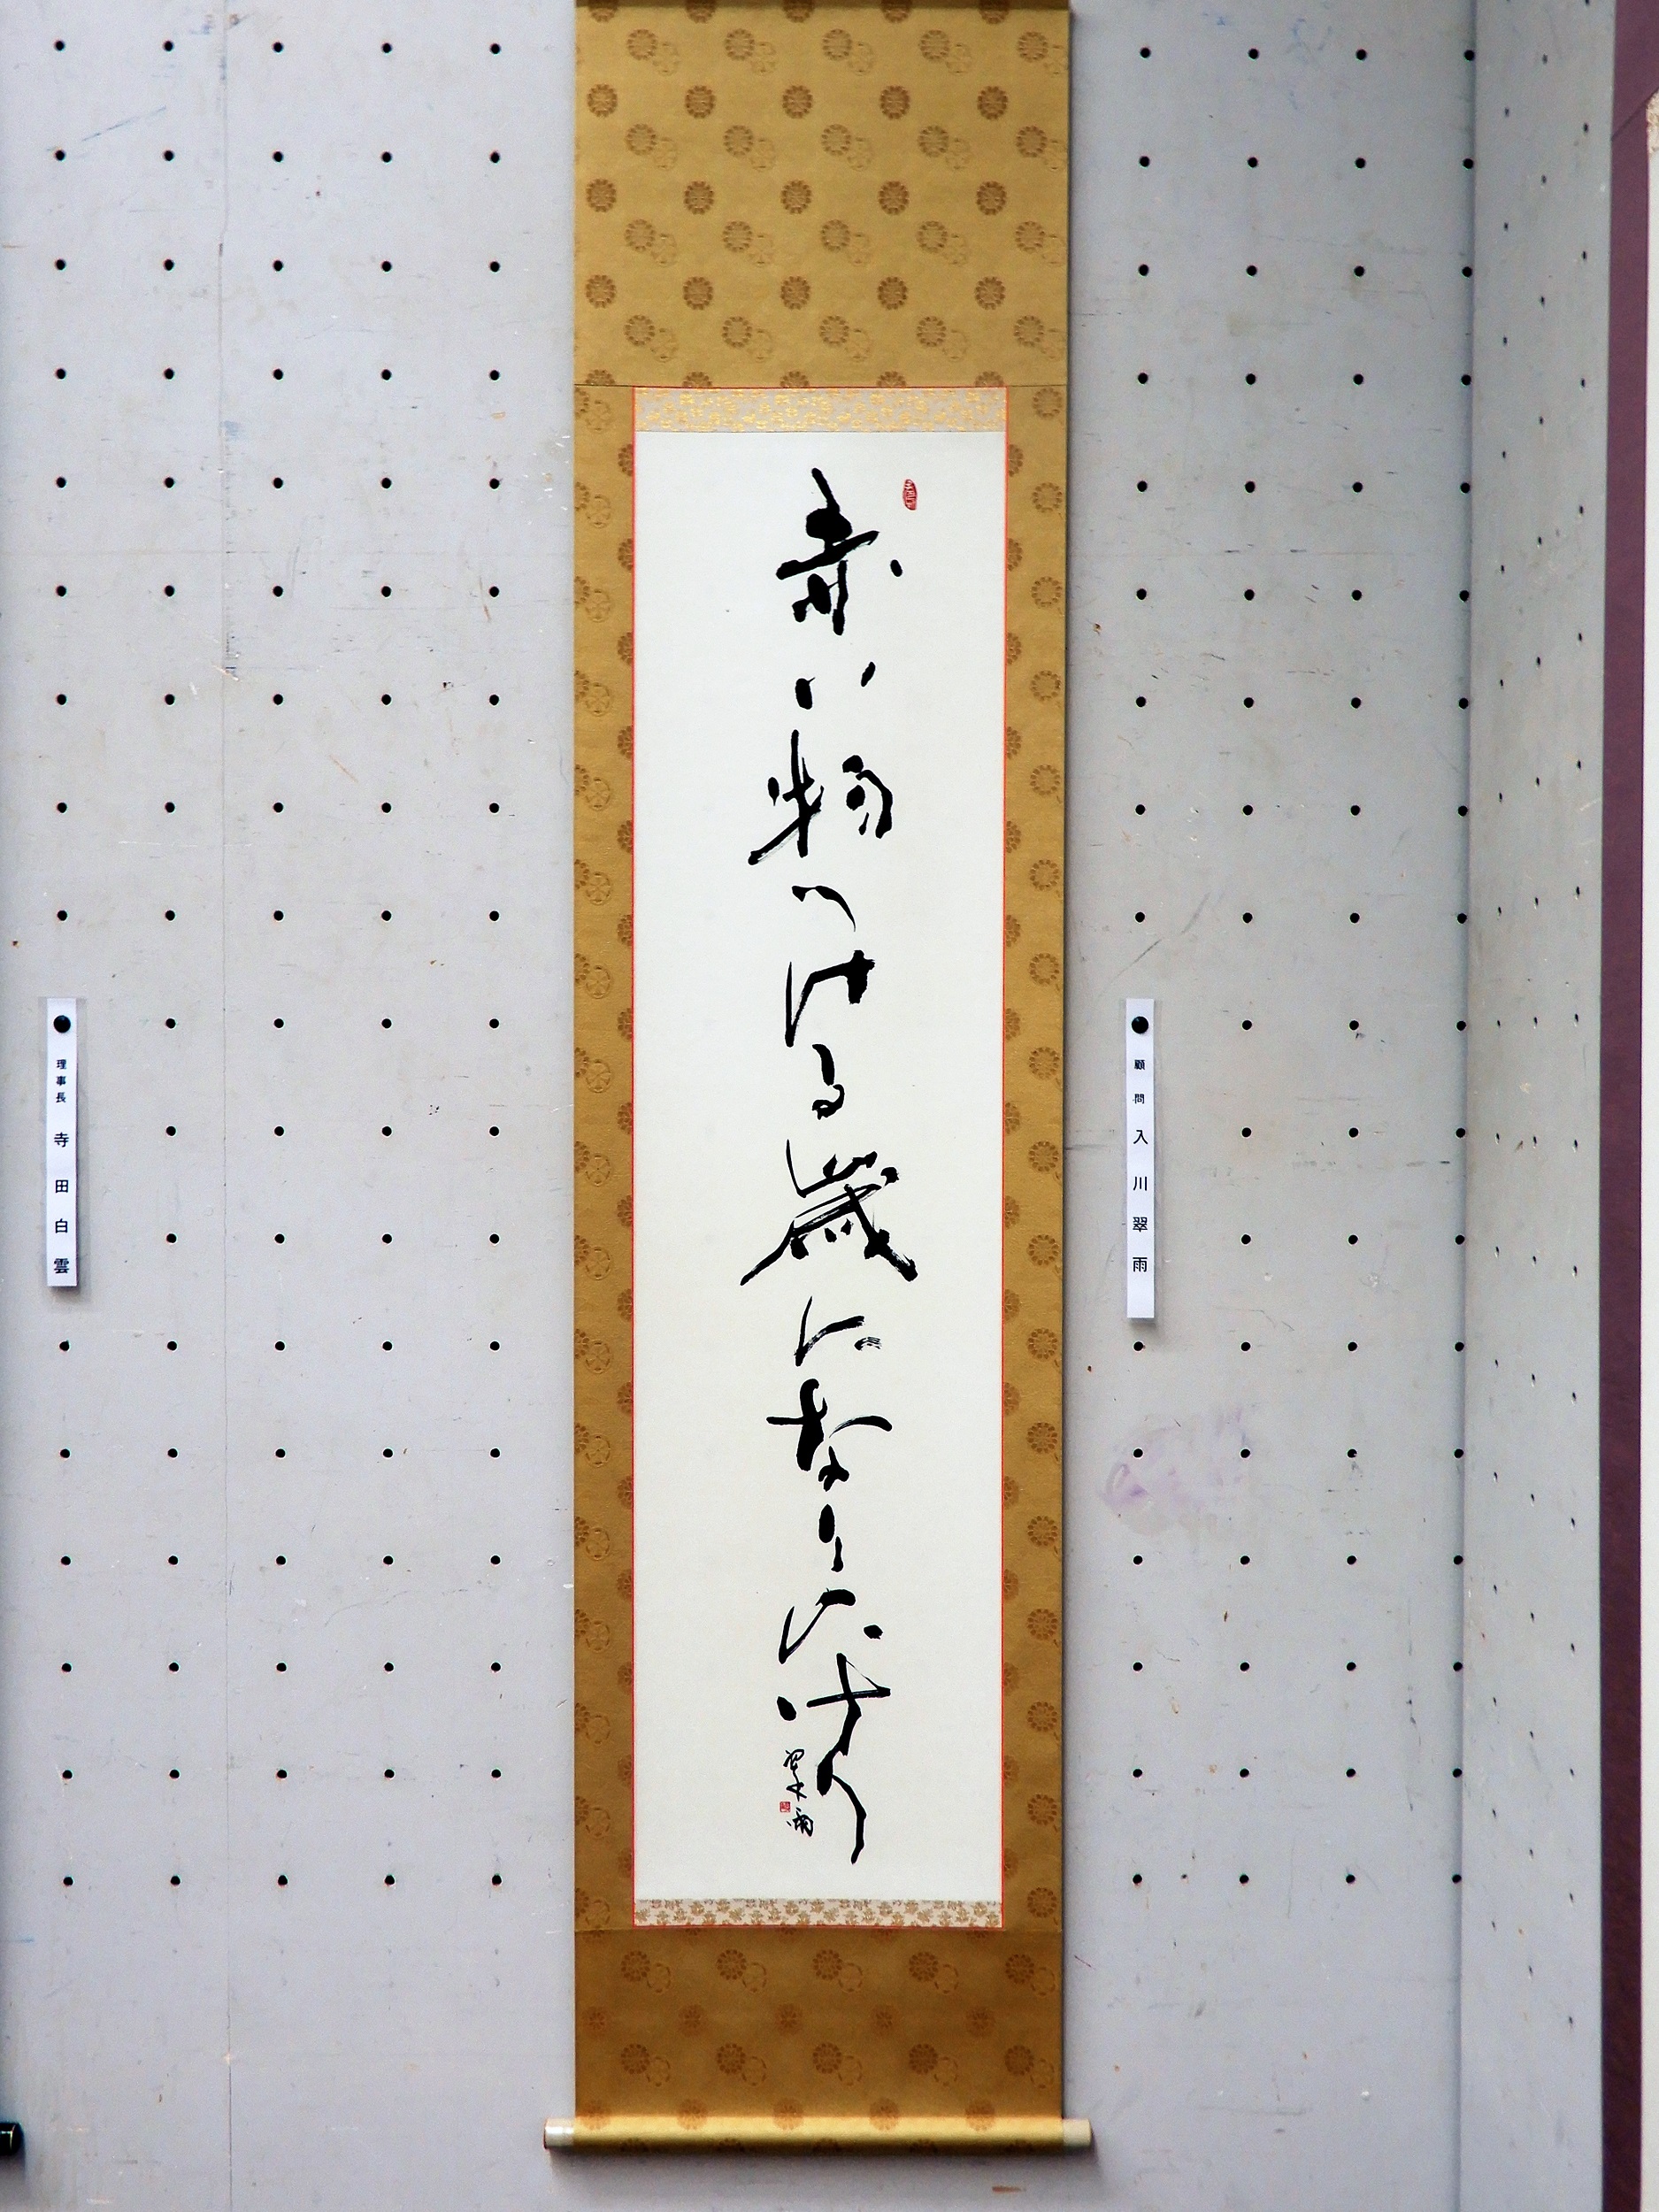 顧問 入川翠雨
赤い物つける歳になりにけり
翠雨
理事長 寺田白雲